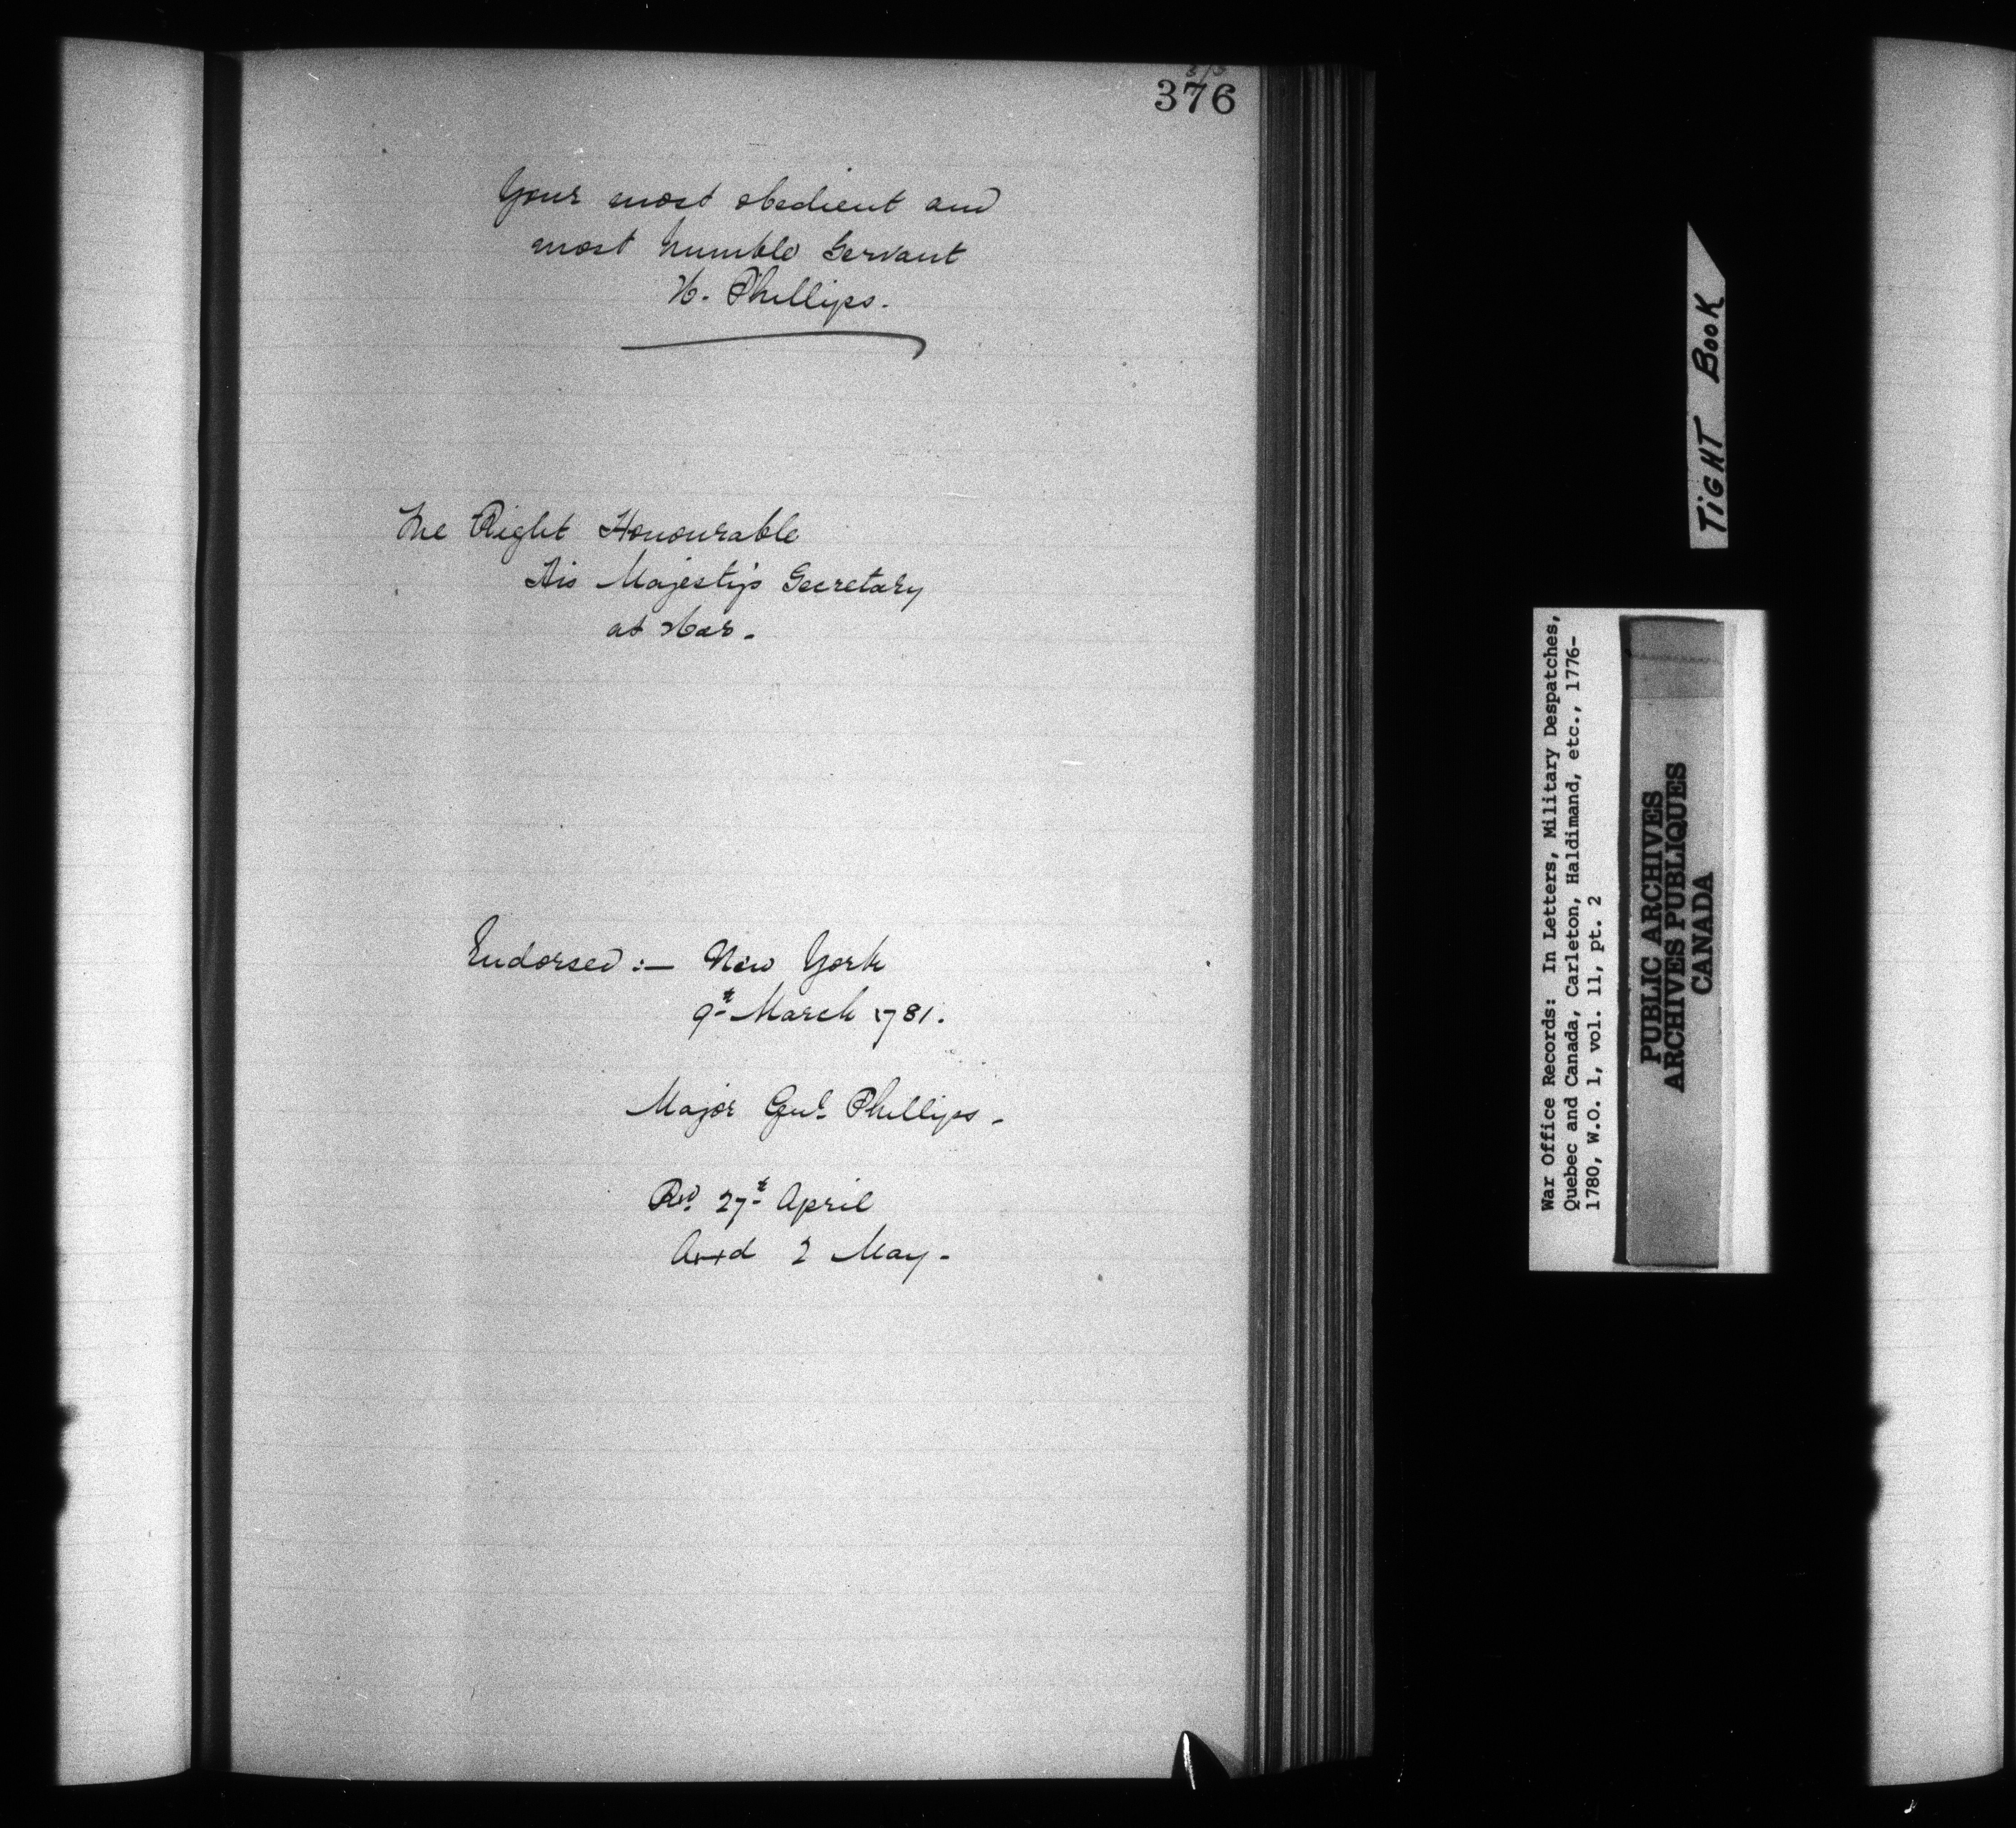 376
Your most obedient and
most humble Servant
W. Phillips.
The Right Honourable
His Majesty's Secretary
at War.
Endorsed :— New York
9th March 1781.
Major Genl. Phillips.
Rd. 27th April
2 May.
TIGHT BOOK
War Office Records: In Letters, Military Despatches,
Quebec and Canada, Carleton, Haldimand, etc., 1776-
1780, W.O. 1, vol. 11, pt. 2
PUBLIC ARCHIVES
ARCHIVES PUBLIQUES
CANADA